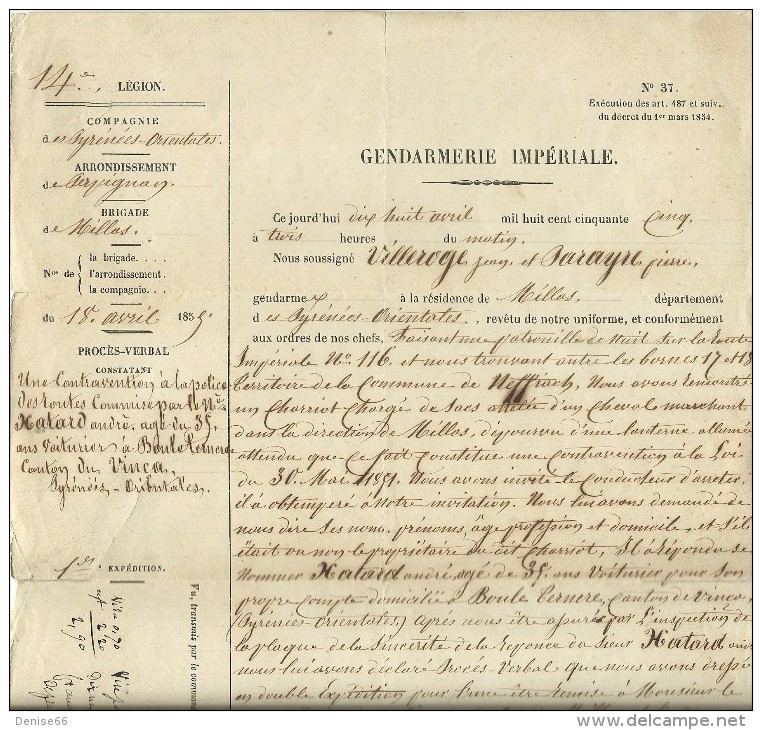 14e. LÉGION.
COMPAGNIE
des Pyrénées-Orientales.
ARRONDISSEMENT
de Perpignan.
BRIGADE
de Millas.
Nos de { la brigade. . . .
l'arrondissement.
la compagnie. . .
du 18. avril 1855.
PROCÈS-VERBAL
CONSTATANT
Une Contravention à la police
des routes Commise par le Né
Hatard andré, agé du 35
ans voiturier à Boule ternere
Canton du Vinca,
Pyrénéis-Orientales,
1re EXPÉDITION.
Vu, transmis par le comma
Visa 0,70
2,20
2,90
No 37.
Exécution des art. 487 et suiv.
du décret du 1er mars 1854.
GENDARMERIE IMPÉRIALE.
Ce jourd'hui dix huit avril mil huit cent cinquante Cinq
à trois heures du matin.
Nous soussigné Villeroge jean et Parayre pierre,
gendarmes à la résidence de Millas, département
des Pyrénées Orientales, revêtu de notre uniforme, et conformément
aux ordres de nos chefs, faisant une patrouille de Nuit sur la Route
Impériale No. 116. et nous trouvant entre les bornes 17 et 18
territoire de la Commune de Neffiach, Nous avons Rencontré
un Charriot Chargé de Sacs attelée d'un Cheval marchant
dans la direction de Millas, dépourvu d'une lanterne allumée
attendu que ce fait Constitue une Contravention à la Loi
du 30 Mai 1851. Nous avons invité le Conducteur d'arreter,
il à obtempéré à Notre invitation. Nous lui avons demandé de
nous dire ses nom. prénoms, âge profession et domicile, et S'il
était ou non le propriétaire du dit Charriot, Il à Répondu se
Nommer Hatard andré, agé de 35 ans Voiturier pour Son
propre Compte domicilié à Boule ternere, Canton de Vinca,
(Pyrénées-Orientales.) après nous être assurés par L'inspection de
la plaque de la Sincérité de la Reponce du Sieur Hatard
nous lui avons déclaré Procès-Verbal que nous avons dressé
en double Expédition pour l'une être Remise à Monsieur le
Denise66